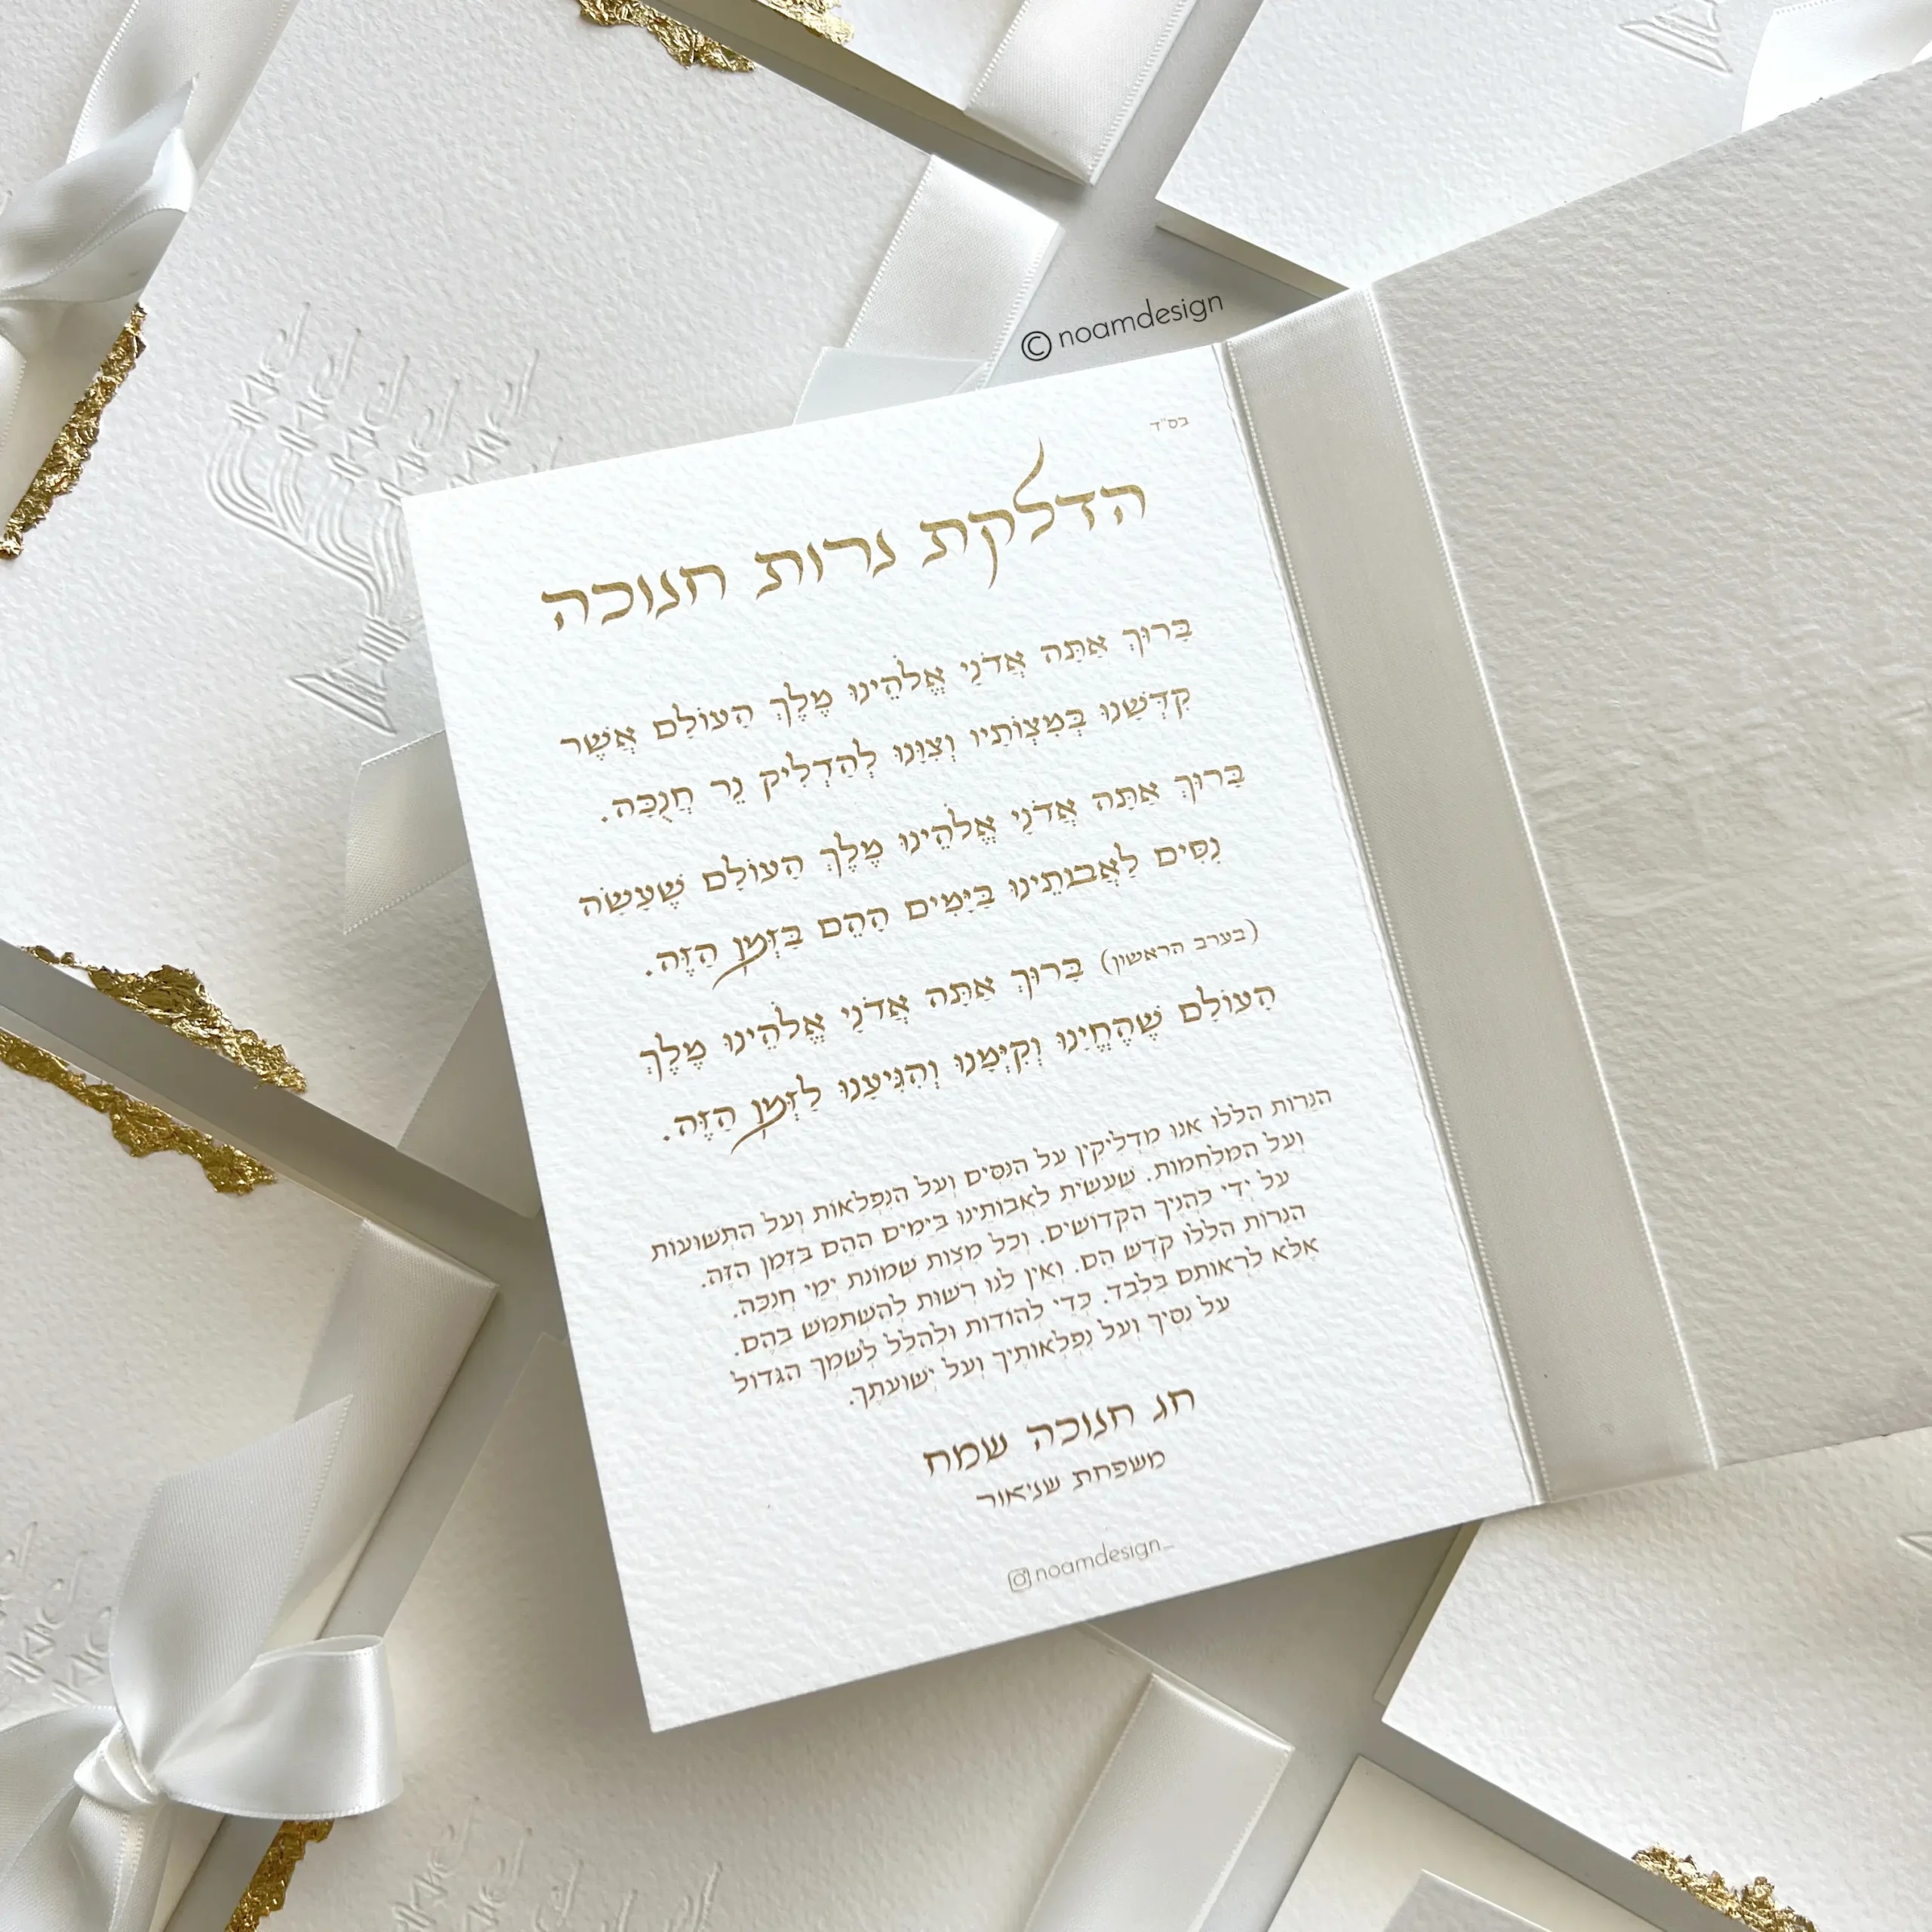 © noamdesign
בס"ד
הדלקת נרות חנוכה
בָּרוּךְ אַתָּה אֲדֹנָי אֱלֹהֵינוּ מֶלֶךְ הָעוֹלָם אֲשֶׁר
קִדְּשָׁנוּ בְּמִצְוֹתָיו וְצִוָּנוּ לְהַדְלִיק נֵר חֲנֻכָּה.
בָּרוּךְ אַתָּה אֲדֹנָי אֱלֹהֵינוּ מֶלֶךְ הָעוֹלָם שֶׁעָשָׂה
נִסִּים לַאֲבוֹתֵינוּ בַּיָּמִים הָהֵם בַּזְּמַן הַזֶּה.
(בערב הראשון) בָּרוּךְ אַתָּה אֲדֹנָי אֱלֹהֵינוּ מֶלֶךְ
הָעוֹלָם שֶׁהֶחֱיָנוּ וְקִיְּמָנוּ וְהִגִּיעָנוּ לַזְּמַן הַזֶּה.
הַנֵּרוֹת הַלָּלוּ אָנוּ מַדְלִיקִין עַל הַנִּסִּים וְעַל הַנִּפְלָאוֹת וְעַל הַתְּשׁוּעוֹת
וְעַל הַמִּלְחָמוֹת. שֶׁעָשִׂיתָ לַאֲבוֹתֵינוּ בַּיָּמִים הָהֵם בַּזְּמַן הַזֶּה.
עַל יְדֵי כֹּהֲנֶיךָ הַקְּדוֹשִׁים. וְכָל מִצְוַת שְׁמוֹנַת יְמֵי חֲנֻכָּה.
הַנֵּרוֹת הַלָּלוּ קֹדֶשׁ הֵם. וְאֵין לָנוּ רְשׁוּת לְהִשְׁתַּמֵּשׁ בָּהֶם.
אֶלָּא לִרְאוֹתָם בִּלְבַד. כְּדֵי לְהוֹדוֹת וּלְהַלֵּל לְשִׁמְךָ הַגָּדוֹל
עַל נִסֶּיךָ וְעַל נִפְלְאוֹתֶיךָ וְעַל יְשׁוּעָתֶךָ.
חג חנוכה שמח
משפחת שניאור
noamdesign_